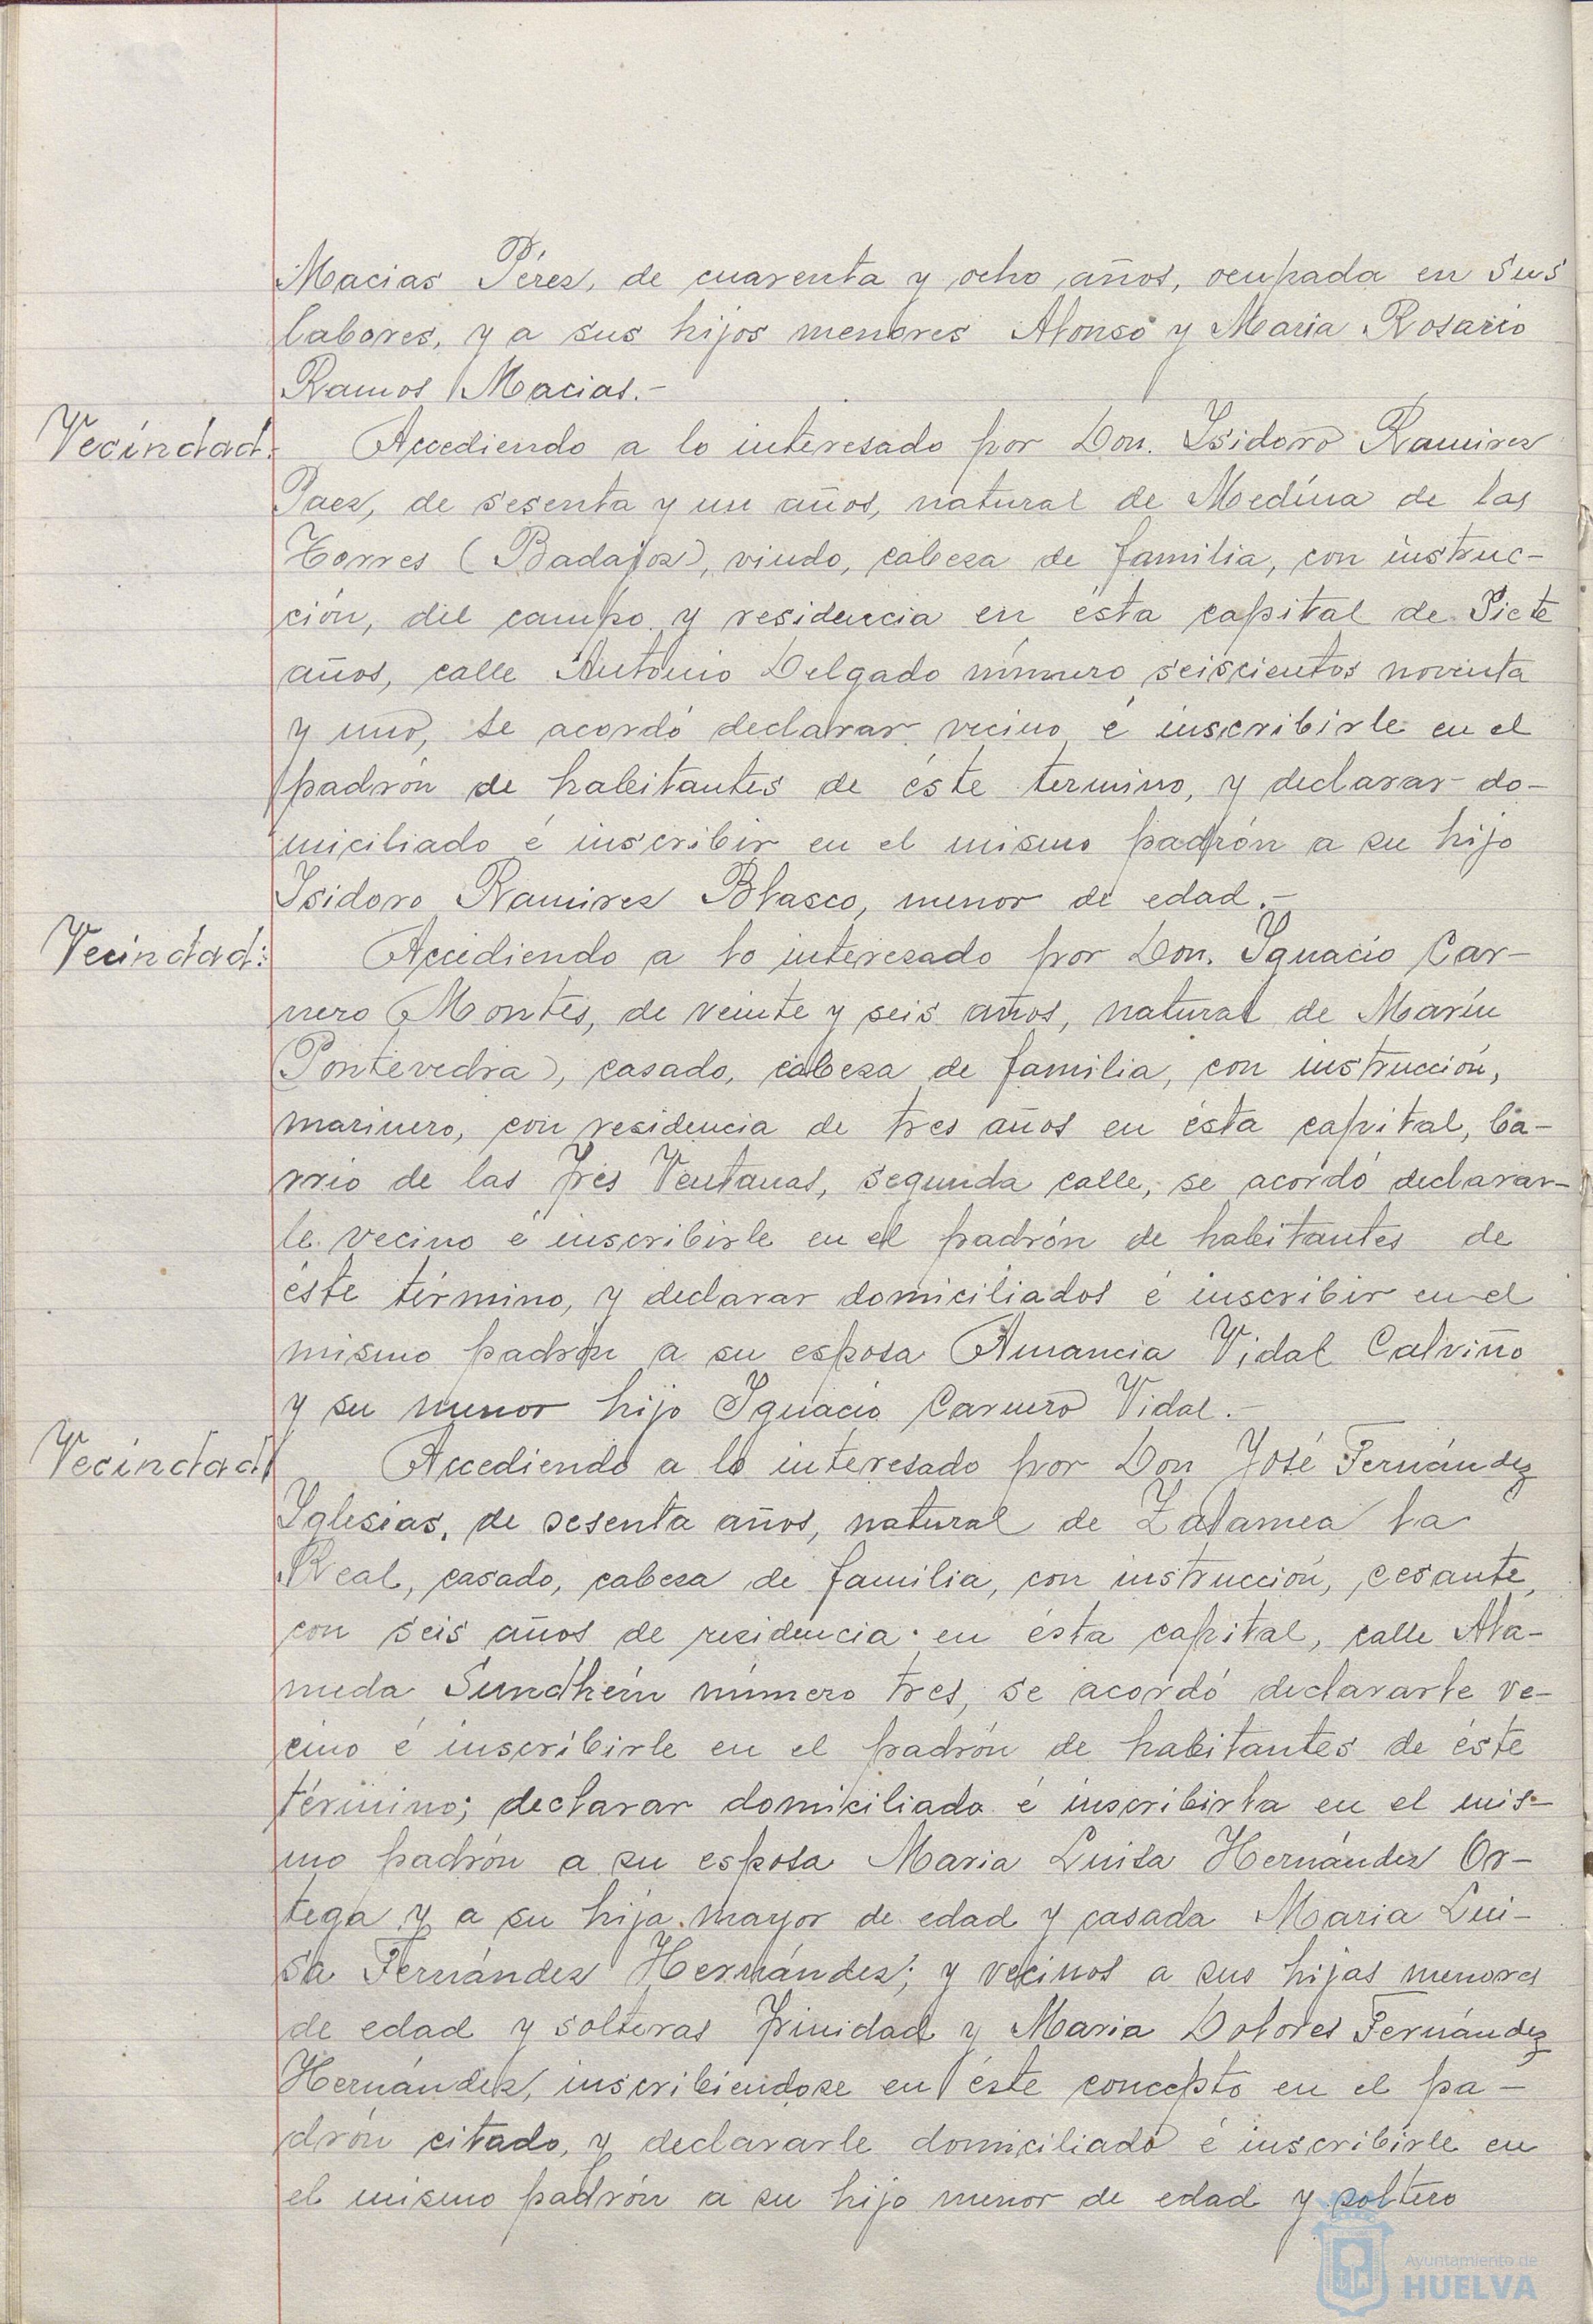 Macias Pérez, de cuarenta y ocho años, ocupada en sus
labores, y a sus hijos menores Alonso y Maria Rosario
Ramos Macias.-
Vecindad.
Accediendo a lo interesado por Don. Isidoro Ramirez
Paez, de sesenta y un años, natural de Medina de las
Torres (Badajoz), viudo, cabeza de familia, con instruc-
ción, del campo y residencia en ésta capital de siete
años, calle Antonio Delgado número seiscientos noventa
y uno, se acordó declarar vecino é inscribirle en el
padrón de habitantes de éste termino, y declarar do-
miciliado é inscribir en el mismo padrón a su hijo
Isidoro Ramirez Blasco, menor de edad.-
Vecindad:
Accediendo a lo interesado por Don. Ignacio Car-
nero Montes, de veinte y seis años, natural de Marín
(Pontevedra), casado, cabeza de familia, con instrucción,
marinero, con residencia de tres años en ésta capital, ba-
rrio de las Tres Ventanas, segunda calle, se acordó declarar-
le vecino é inscribirle en el padrón de habitantes de
éste término, y declarar domiciliados é inscribir en el
mismo padrón a su esposa Amancia Vidal Calviño
y su menor hijo Ignacio Carnero Vidal.-
Vecindad
Accediendo a lo interesado por Don José Fernández
Iglesias, de sesenta años, natural de Zalamea la
Real, casado, cabeza de familia, con instrucción, cesante,
con seis años de residencia en ésta capital, calle Ala-
meda Sundhein número tres, se acordó declararle ve-
cino é inscribirle en el padrón de habitantes de éste
término; declarar domiciliada é inscribirla en el mis-
mo padrón a su esposa Maria Luisa Hernández Or-
tega y a su hija mayor de edad y casada Maria Lui-
sa Fernández Hernández; y vecinos a sus hijas menores
de edad y solteras Trinidad y Maria Dolores Fernández
Hernández, inscribiendose en éste concepto en el pa-
drón citado, y declararle domiciliado é inscribirle en
el mismo padrón a su hijo menor de edad y soltero
Ayuntamiento de
HUELVA